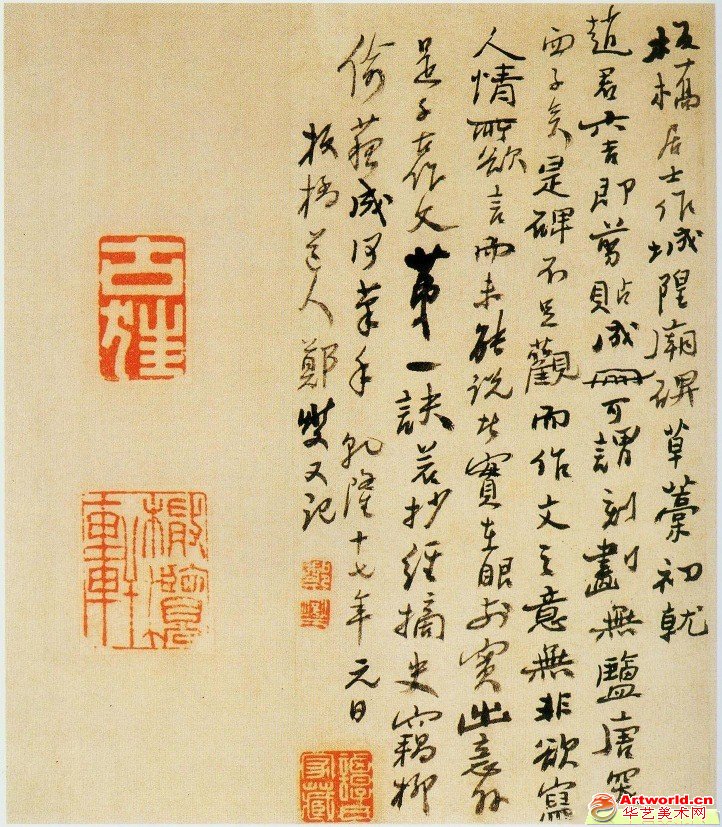 板橋居士作城隍廟碑草藁初就
趙君六吉即剪貼成冊可謂刻畫無鹽唐突
西子矣是碑不足觀而作文之意無非欲寫
人情所欲言而未能說此實在眼前實出意外
是千古作文第一訣若抄經摘史竊柳
偷蘇成何筆手乾隆十七年元日
板橋道人鄭燮又記
鄭燮
橄欖軒
Artworld.cn
华艺美术网